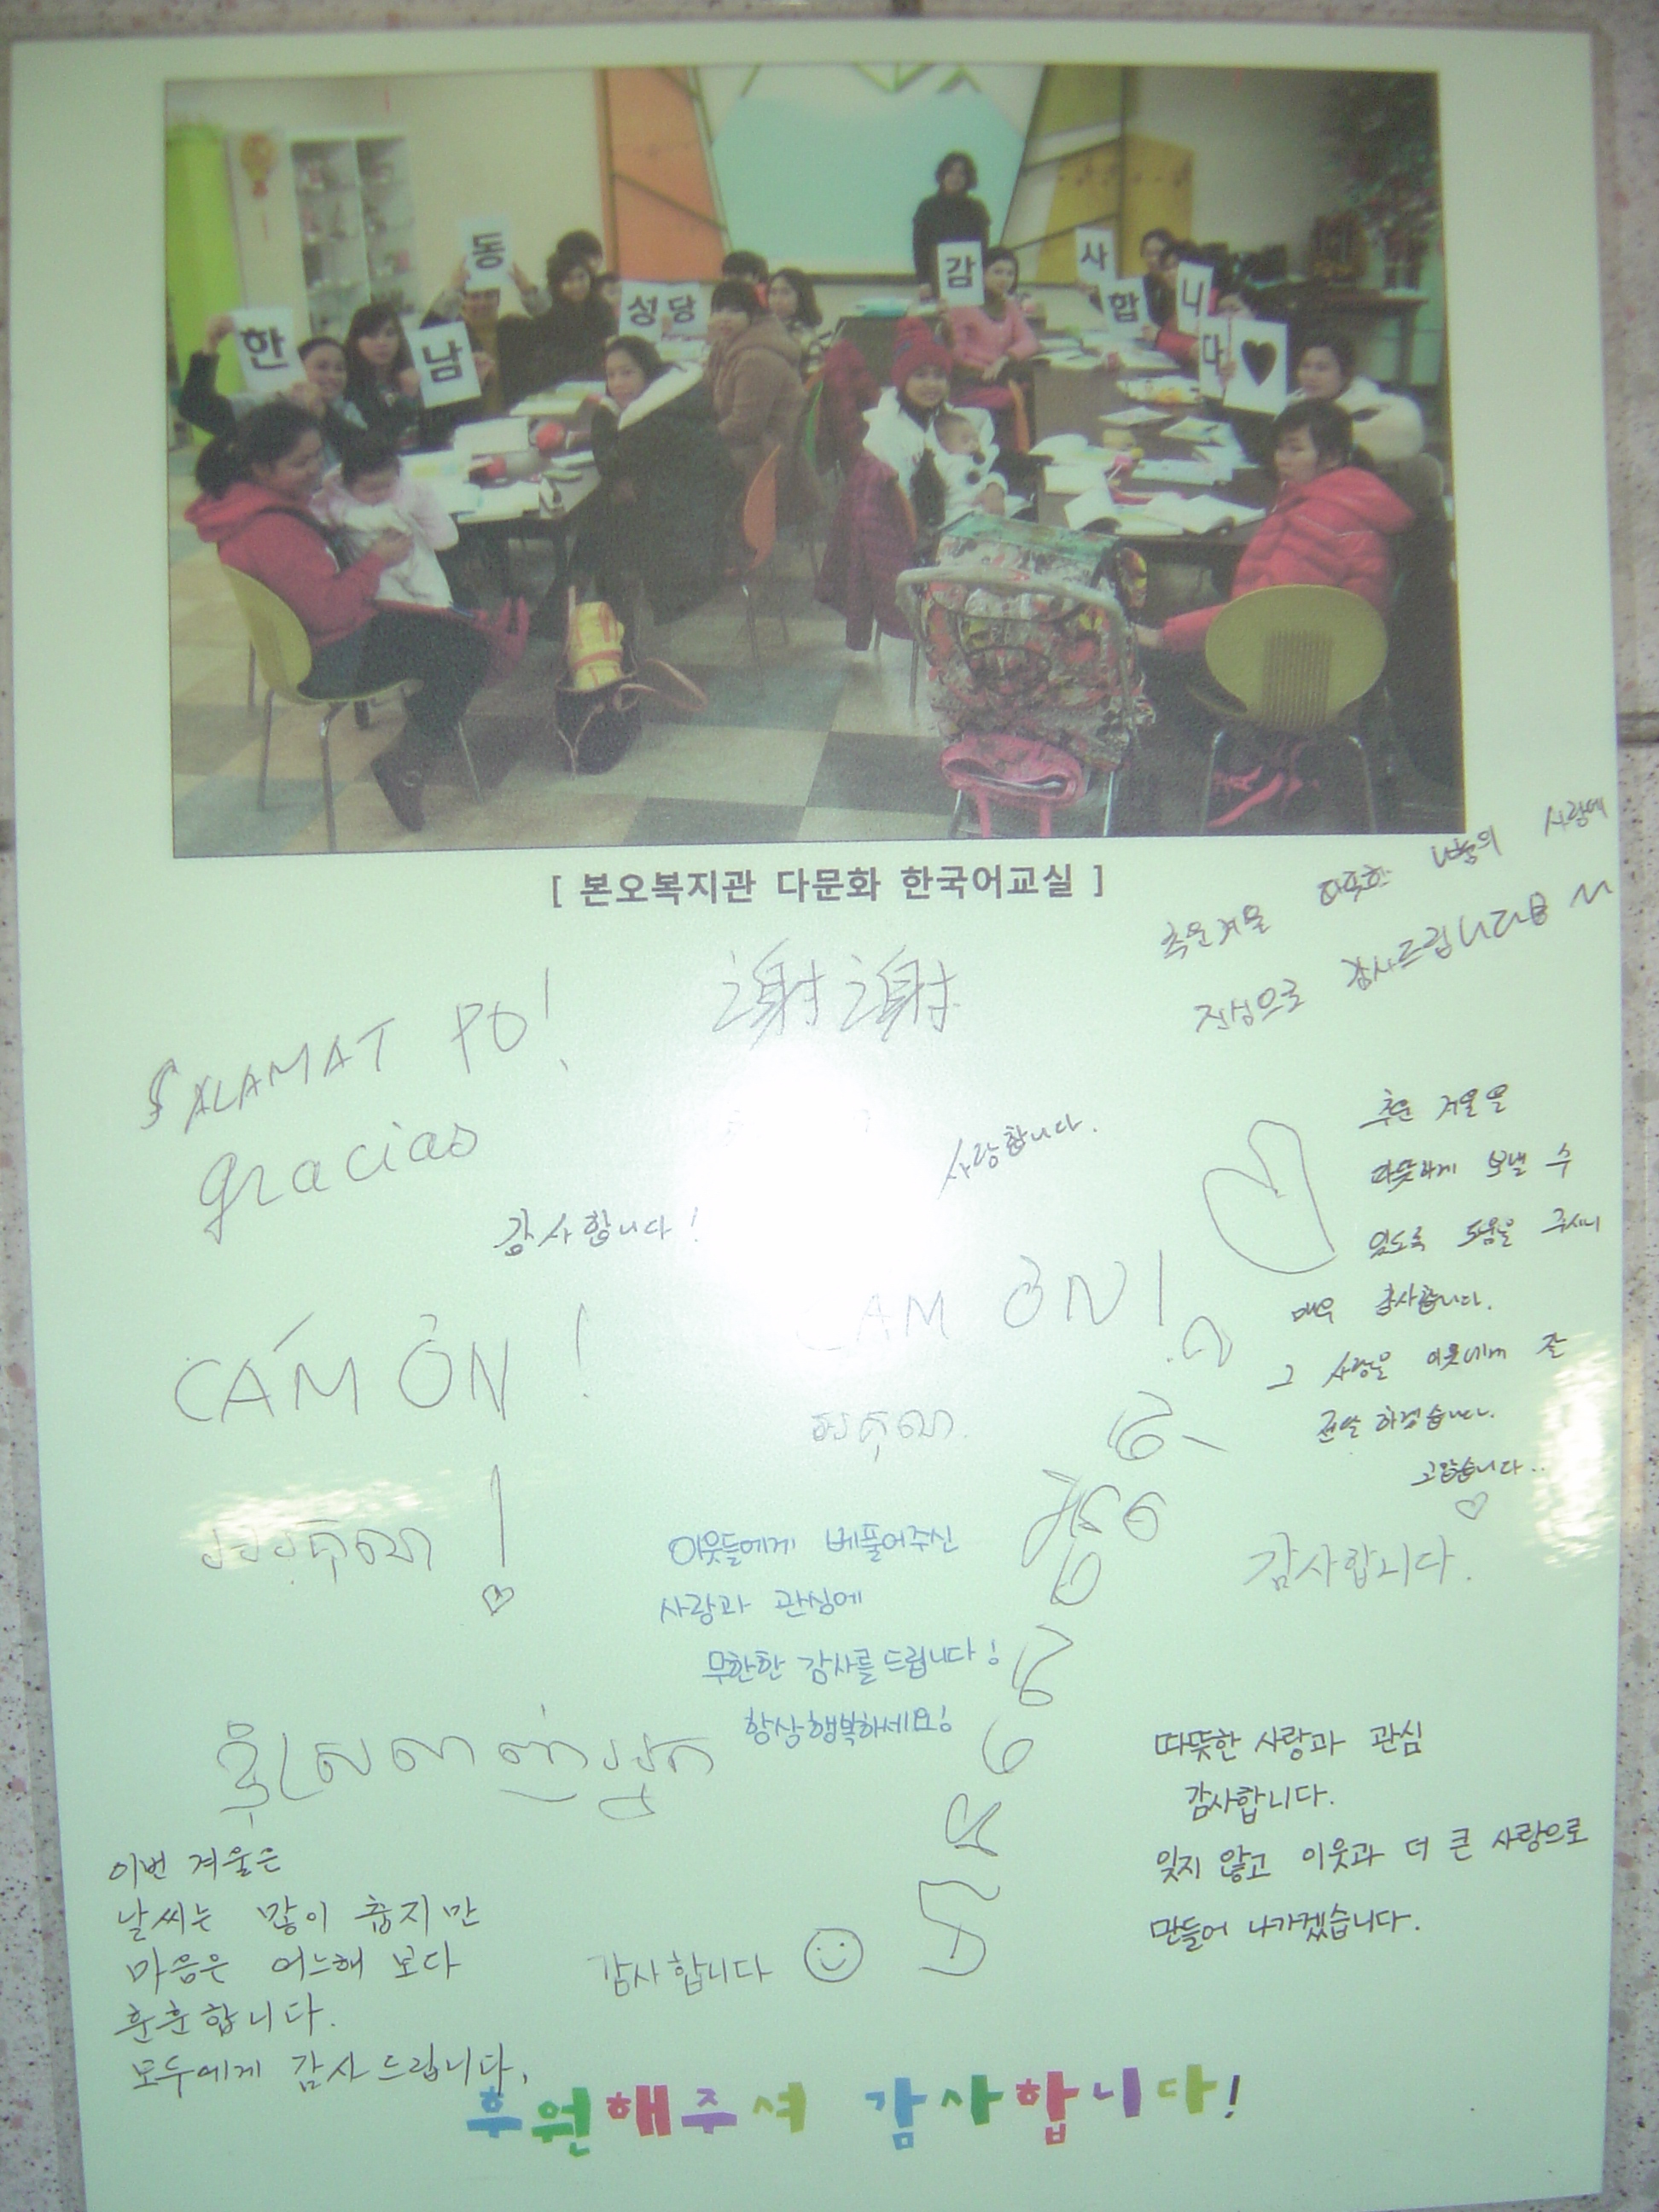 한 남 동 성당 감 사 합 니 다 ♥
[ 본오복지관 다문화 한국어교실 ]
추운겨울 따뜻한 나눔의 사랑에
진심으로 감사드립니다
SALAMAT PO!
谢谢
gracias
감사합니다!
사랑합니다.
추운 겨울을
따뜻하게 보낼 수
있도록 도움을 주시니
매우 감사합니다.
그 사랑을 이웃에게 잘
전달 하겠습니다.
고맙습니다..
♡
CÁM ÒN !
CAM ÒN!
អរគុណ.
អរគុណ !
♡
이웃들에게 베풀어주신
사랑과 관심에
무한한 감사를 드립니다!
항상행복하세요!
감사합니다.
따뜻한 사랑과 관심
감사합니다.
잊지 않고 이웃과 더 큰 사랑으로
만들어 나가겠습니다.
이번 겨울은
날씨는 많이 춥지만
마음은 어느해 보다
훈훈합니다.
모두에게 감사드립니다.
감사합니다
후원해주셔 감사합니다!